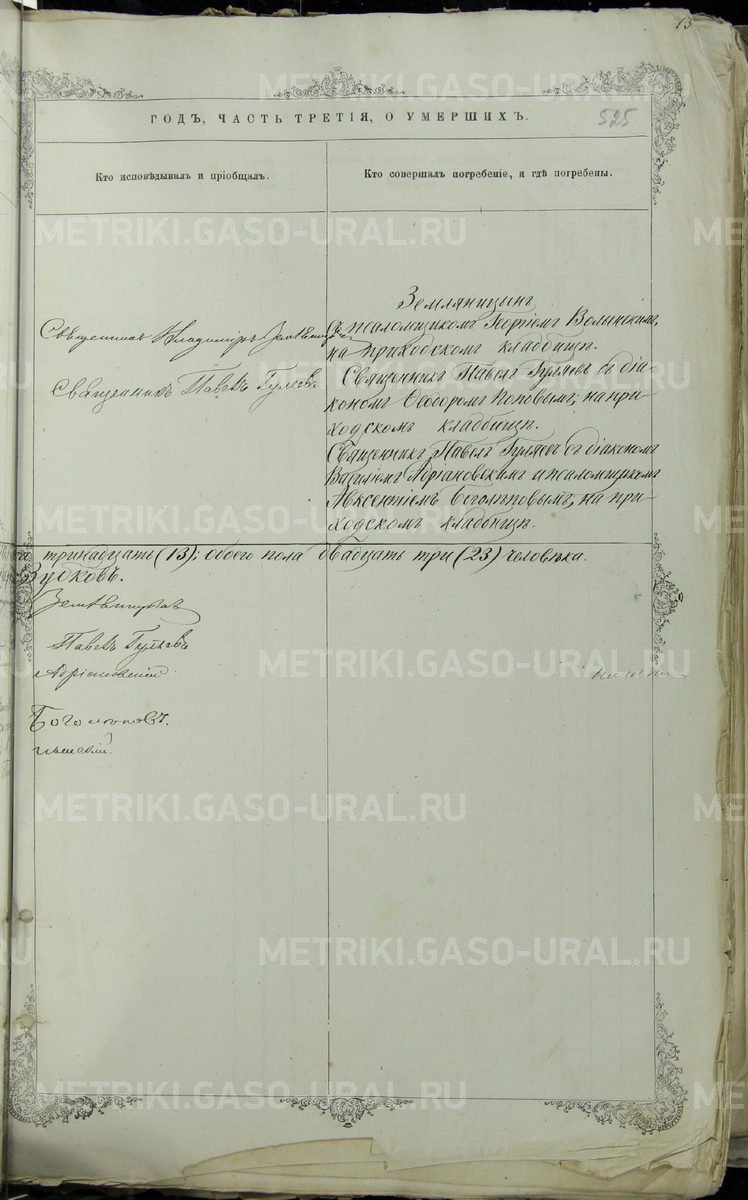 13
ГОДЪ, ЧАСТЬ ТРЕТІЯ, О УМЕРШИХЪ.
525
Кто исповѣдывалъ и пріобщалъ.
Кто совершалъ погребеніе, и гдѣ погребены.
Священникъ Владиміръ Земляницынъ
Священникъ Павелъ Гуляевъ
Земляницынъ
съ псаломщикомъ Георгіемъ Волынскимъ,
на приходскомъ кладбищѣ.
Священникъ Павелъ Гуляевъ съ діа-
кономъ Ѳеодоромъ Поповымъ, на при-
ходскомъ кладбищѣ.
Священникъ Павелъ Гуляевъ съ діакономъ
Василіемъ Адріановскимъ и псаломщикомъ
Авксентіемъ Богомоловымъ, на при-
ходскомъ кладбищѣ.
тринадцать (13); обоего пола двадцать три (23) человѣка.
Зубковъ.
Земляницынъ
Павелъ Гуляевъ
Адріановскій
METRIKI.GASO-URAL.RU